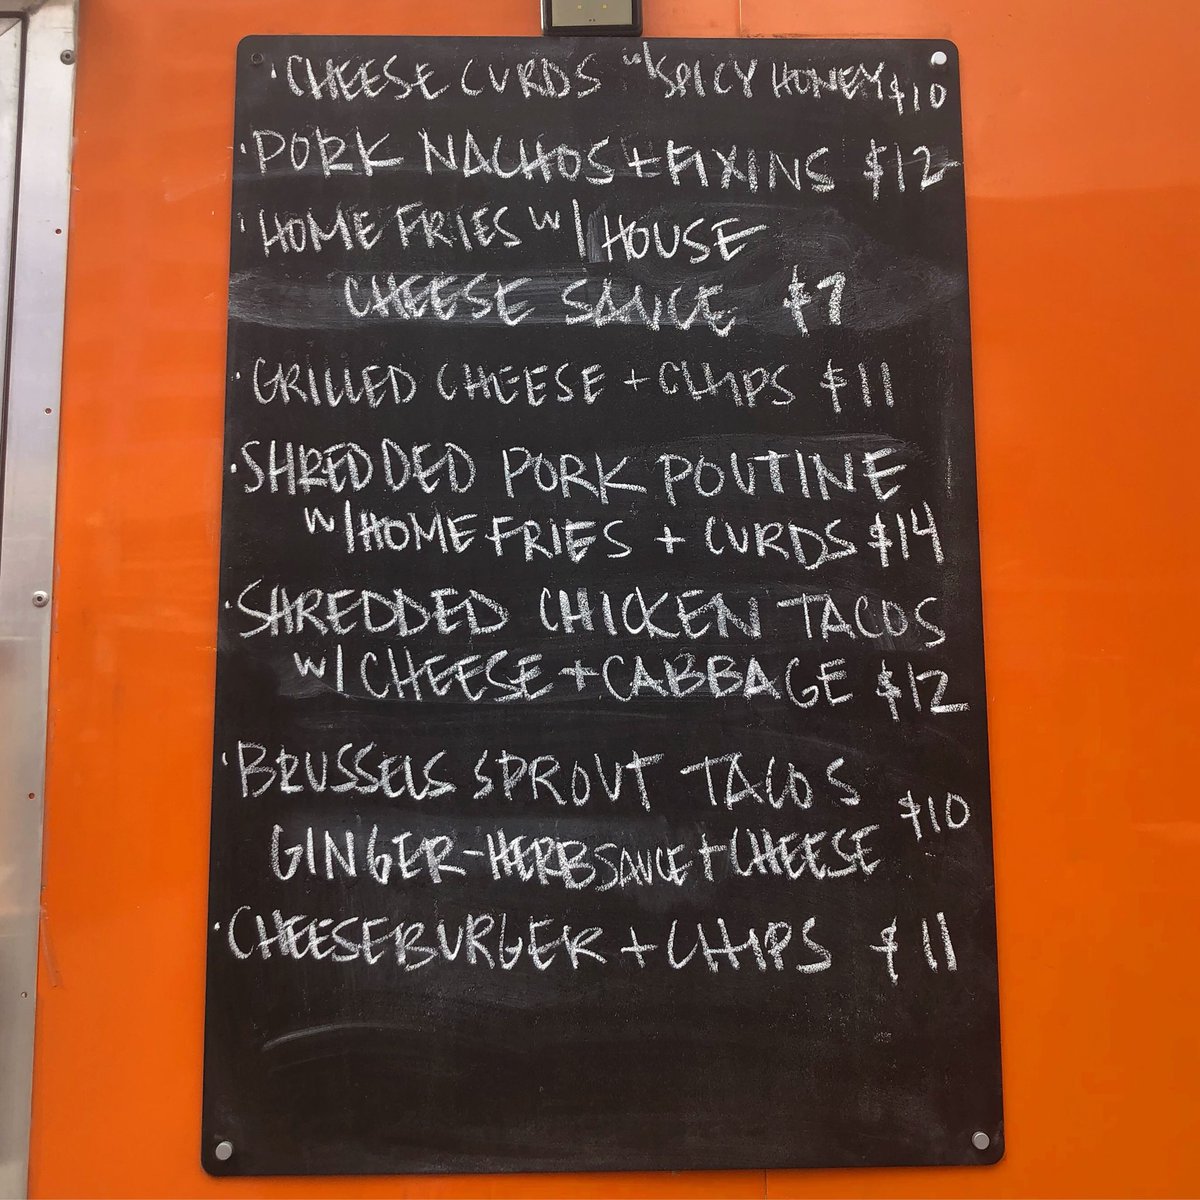 · CHEESE CURDS w/ SPICY HONEY $10
· PORK NACHOS + FIXINS $12
· HOME FRIES w/ HOUSE
CHEESE SAUCE $7
· GRILLED CHEESE + CHIPS $11
· SHREDDED PORK POUTINE
w/ HOME FRIES + CURDS $14
· SHREDDED CHICKEN TACOS
w/ CHEESE + CABBAGE $12
· BRUSSELS SPROUT TACOS
$10
GINGER-HERB SAUCE + CHEESE
· CHEESEBURGER + CHIPS $11